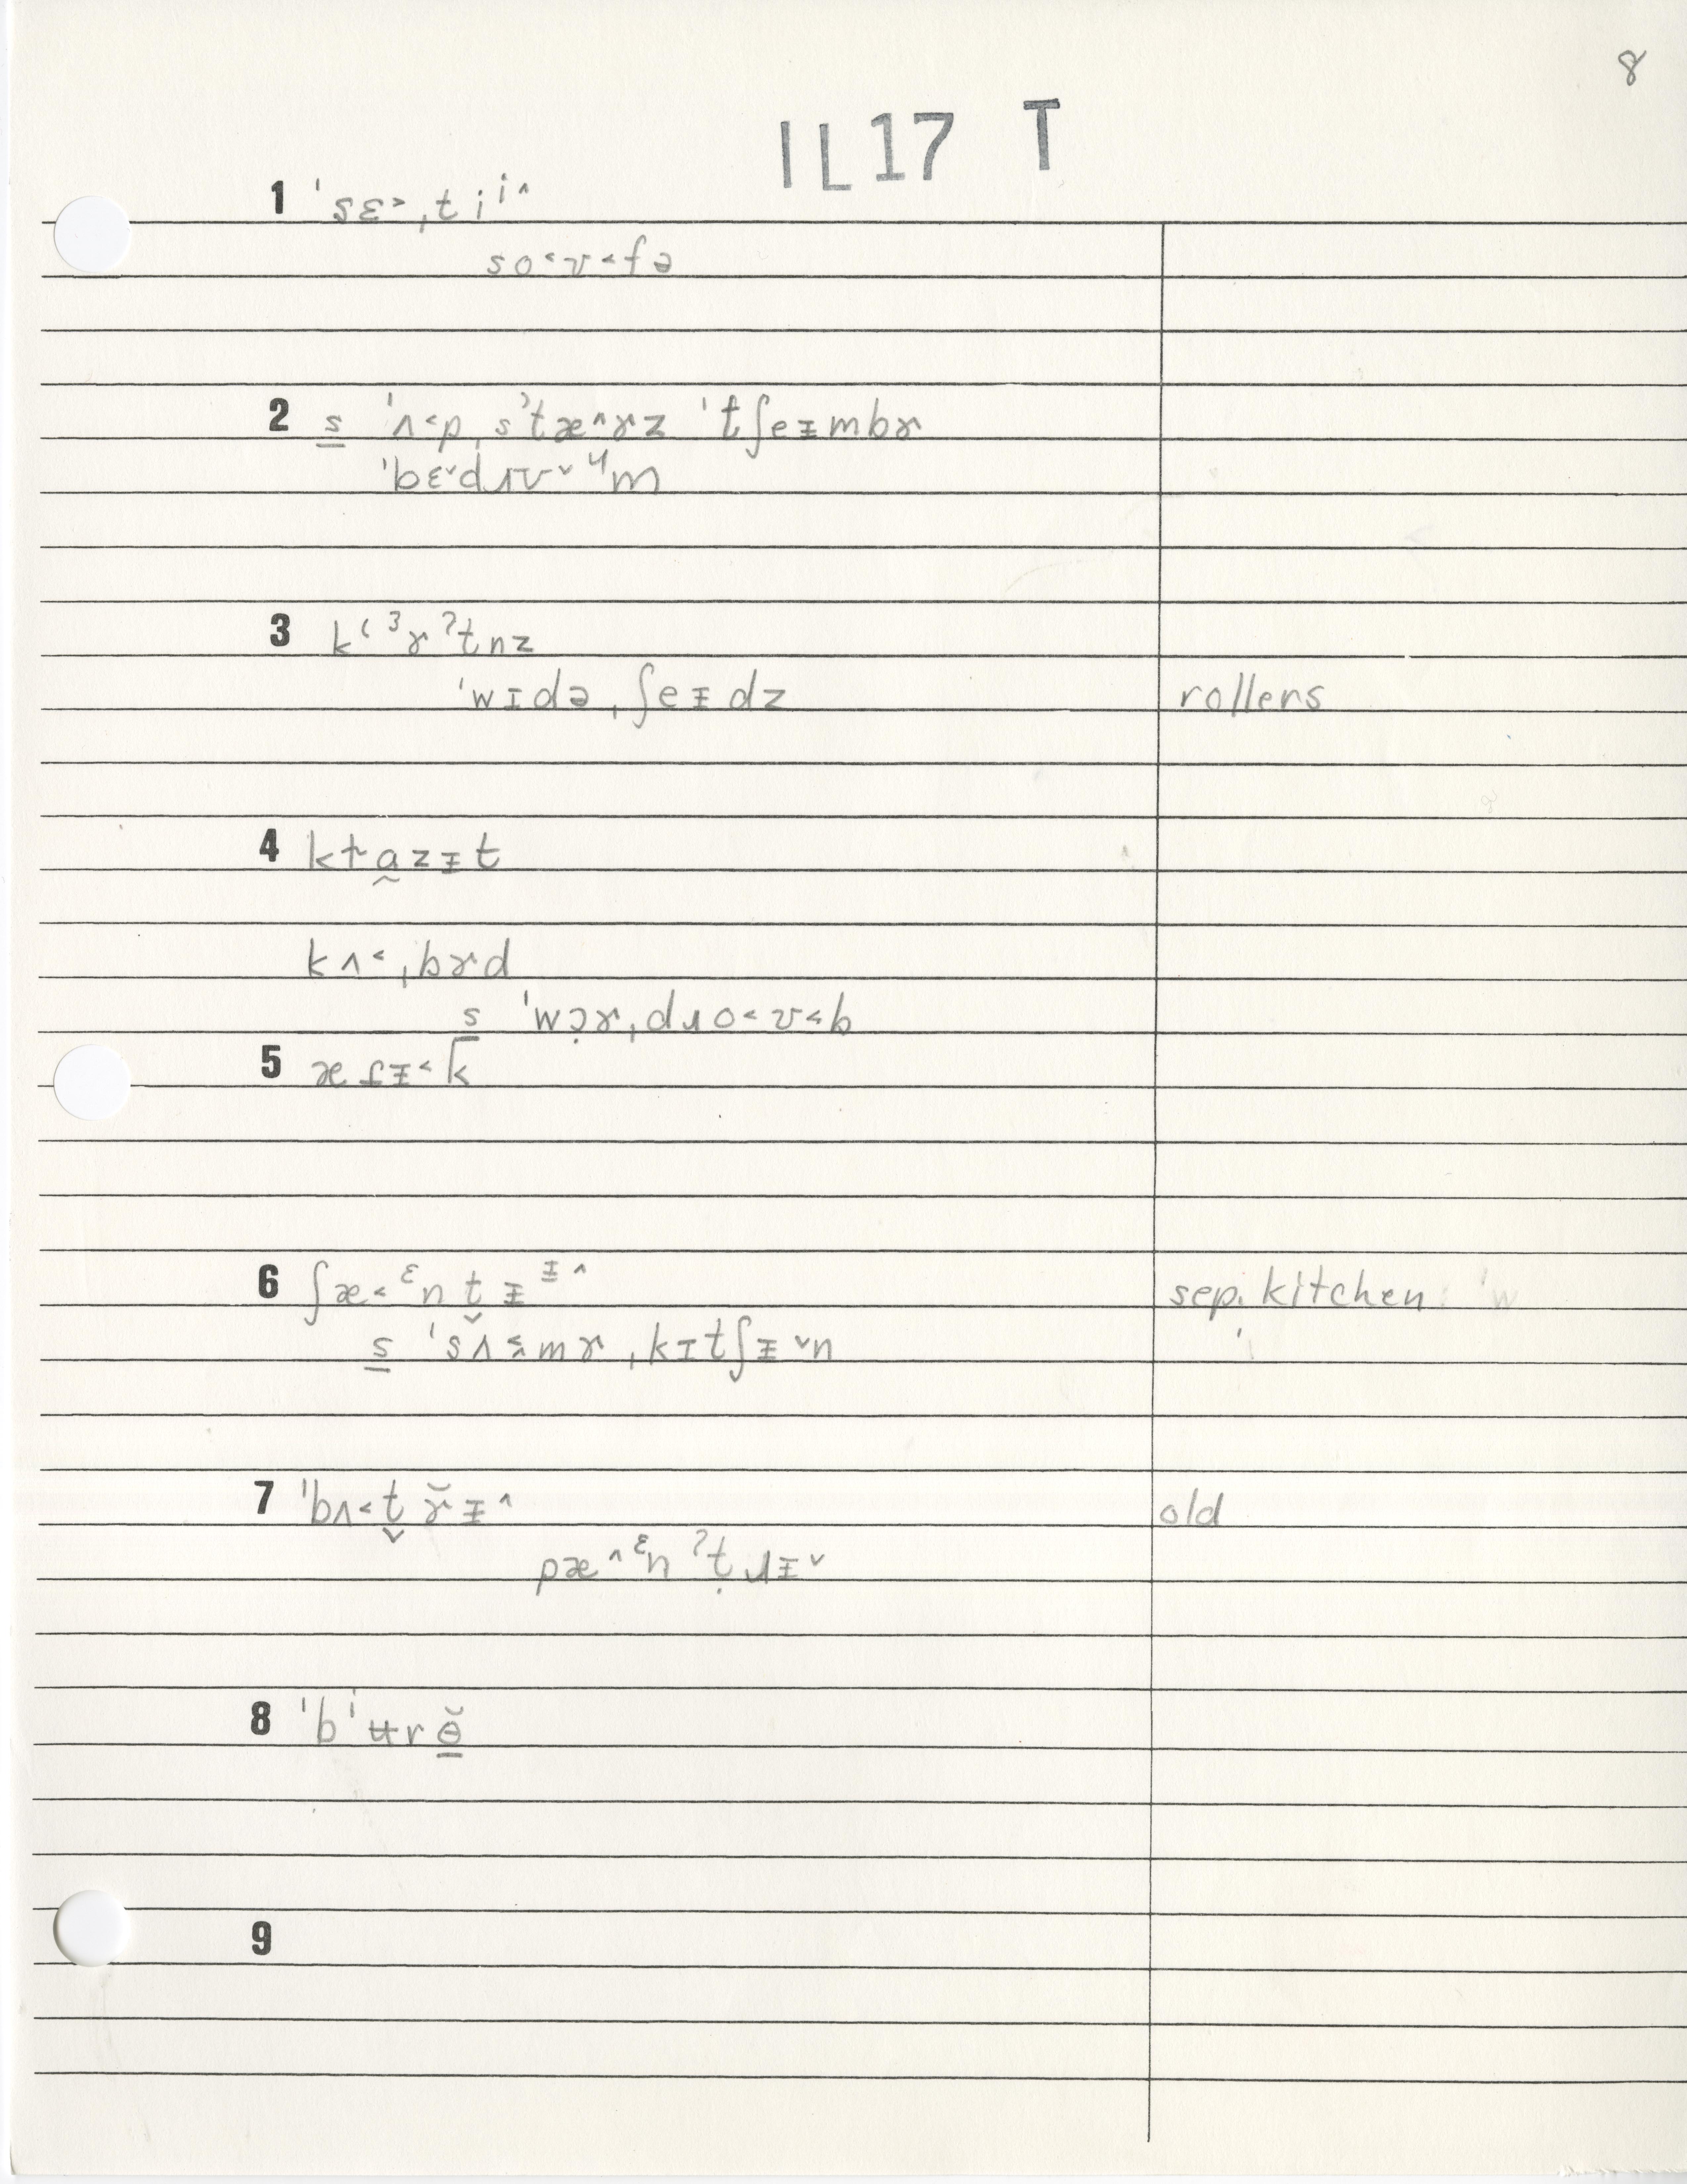 8
IL17 T
1 ˈsɛ˃ˌtiⁱ˄
so˂ʊ˂fə
2 s̲ ˈʌ˂pˌsˈtæ˄ɚz ˈtʃeɪmbɚ
ˈbɛ˅dɹʊ˅ᶣm
3 kʿᶟɚˀtnz
ˈwɪdəˌʃeɪdz rollers
4 kɫa̰zɪt
kʌ˂ˌbɚd
s̲ ˈwɔ̣ɚˌdɹo˂ʊ˂b
5 æɾɪ˂k
6 ʃæ˂ᵋnt̬ɪᶦ˄ sep. kitchen
s̲ ˈsʌ˂mɚˌkɪtʃɪ˅n
7 ˈbʌ˂t̬ɚ̆ɪ˄ old
pæ˄ᵋnˀṭɹɪ˅
8 ˈbⁱʉrɵ̲̆
9